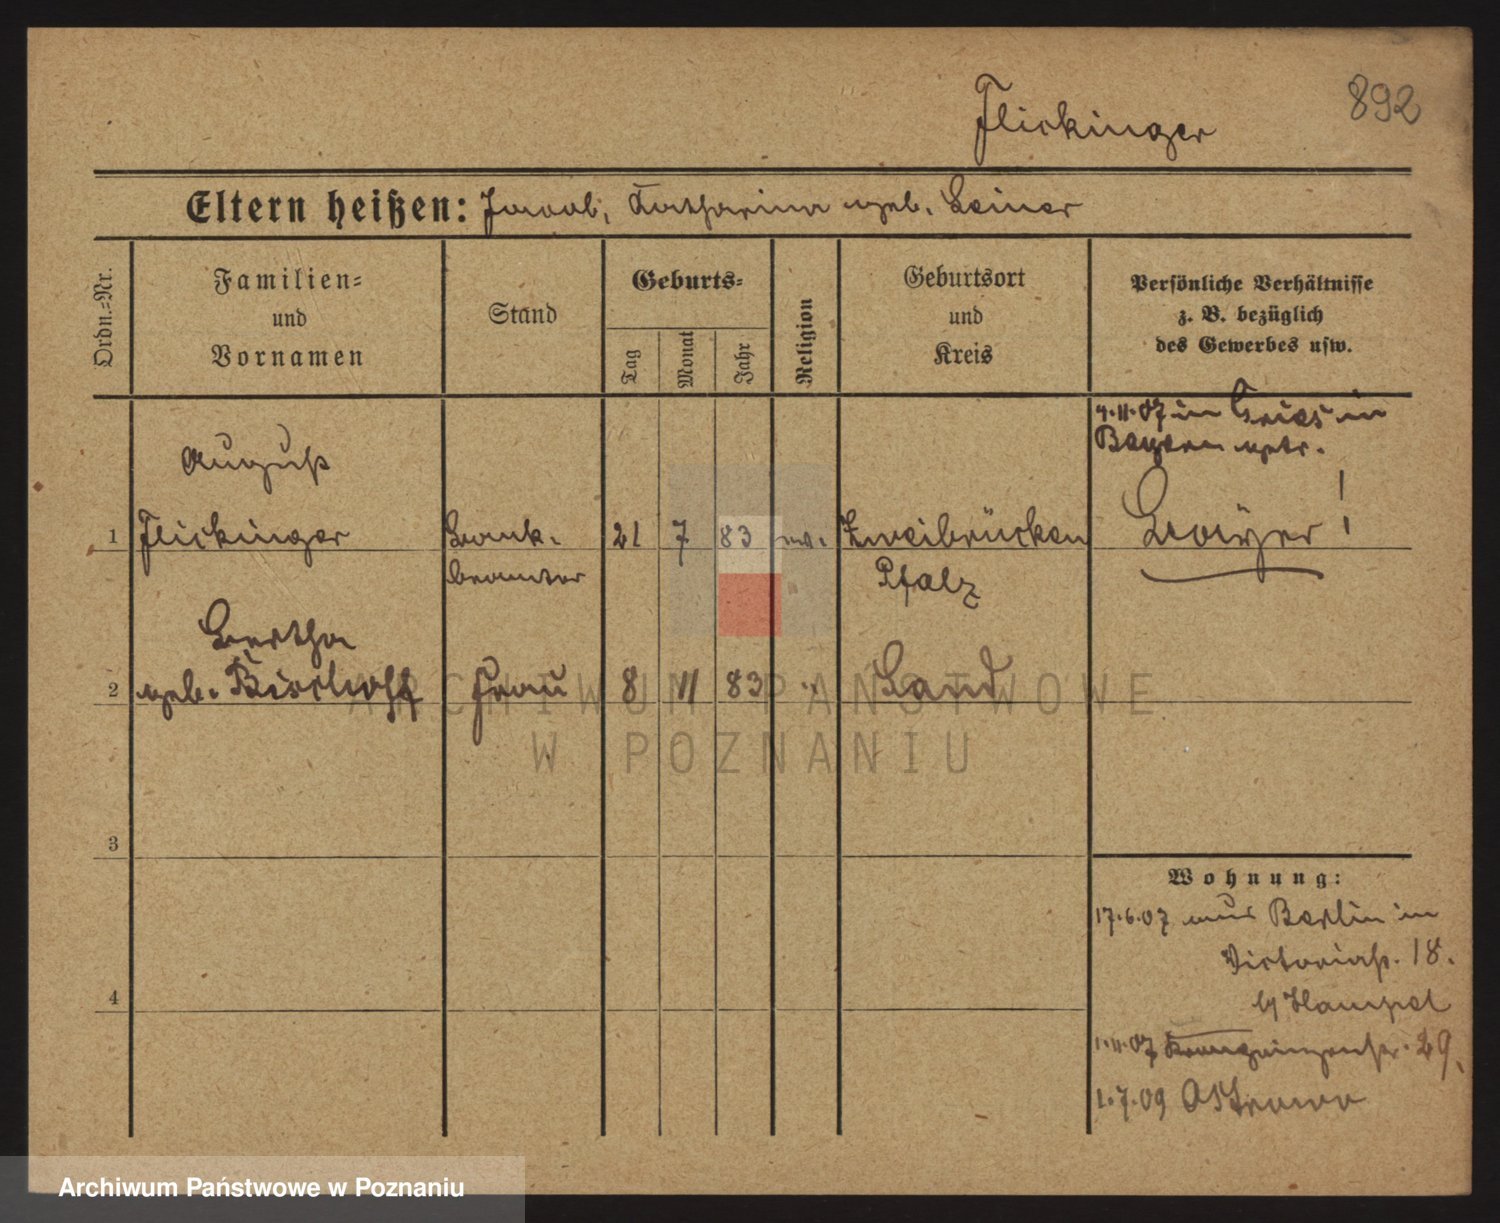 892
Flickinger
Eltern heißen: Jacob, Katharina geb. Leiner
Ordn.=Nr.
Familien=
und
Vornamen
Stand
Geburts=
Tag
Monat
Jahr
Religion
Geburtsort
und
Kreis
Persönliche Verhältnisse
z. B. bezüglich
des Gewerbes usw.
4.11.07 in Gries in
Bayern getr.
August
1 Flickinger Bank- 21 7 83 ev. Zweibrücken Bayer!
beamter Pfalz
Bertha
2 geb. Bischoff Frau 8 11 83 " Land
3
Wohnung:
17.6.07 aus Berlin in
Victoriastr. 18.
b/ Hampel
4
1.11.07 Kronprinzenstr. 29.
1.7.09 Ostrowo
ARCHIWUM PAŃSTWOWE
W POZNANIU
Archiwum Państwowe w Poznaniu